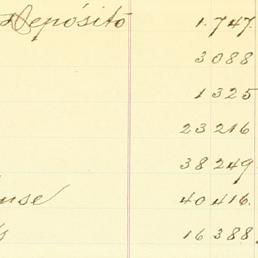 Depósito 1.747
3088
1325
23216
38249.
40416.
16388.